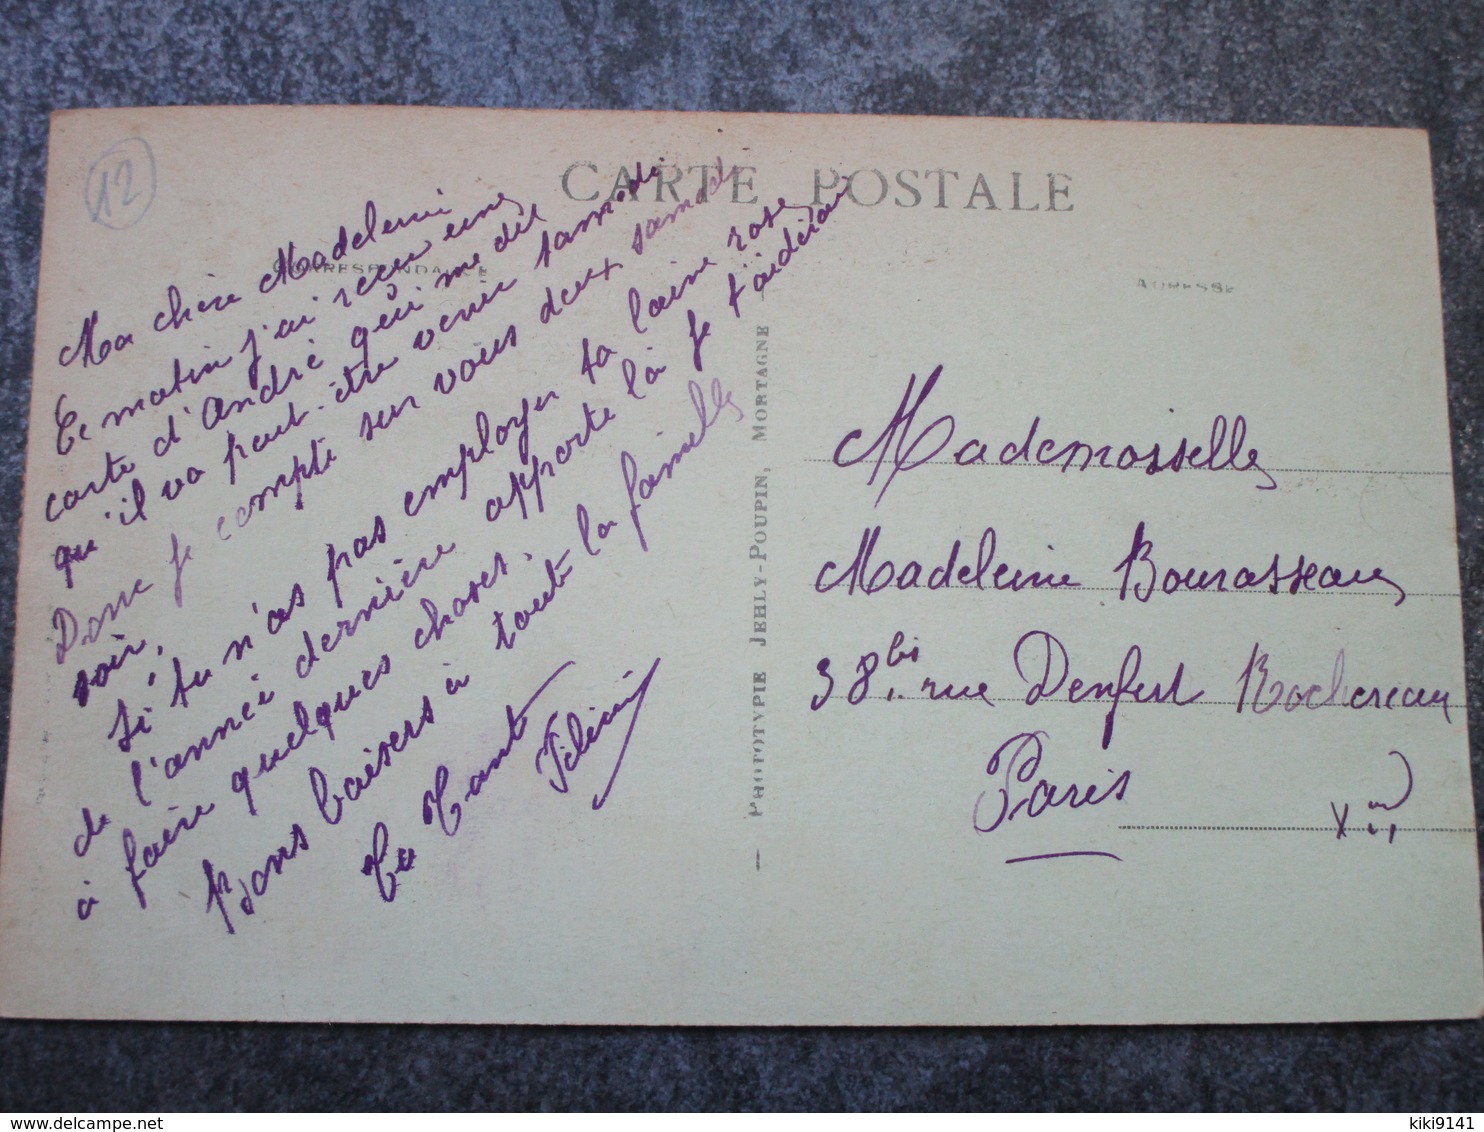 12
CARTE POSTALE
CORRESPONDANCE
ADRESSE
Ma chère Madeleine
Ce matin j'ai recu une
carte d'André qui me dit
qu'il va peut-être venir samedi
Donc je compte sur vous deux samedi
soir.
Si tu n'as pas employer ta laine rose
de l'année dernière apporte là je t'aiderai
à faire quelques choses.
Bons baisers à toute la famille
Ta Tante
PHOTOTYPIE JEHLY-POUPIN, MORTAGNE
Mademoiselle
Madeleine Bourasseau
38 bis rue Denfert Rochereau
Paris